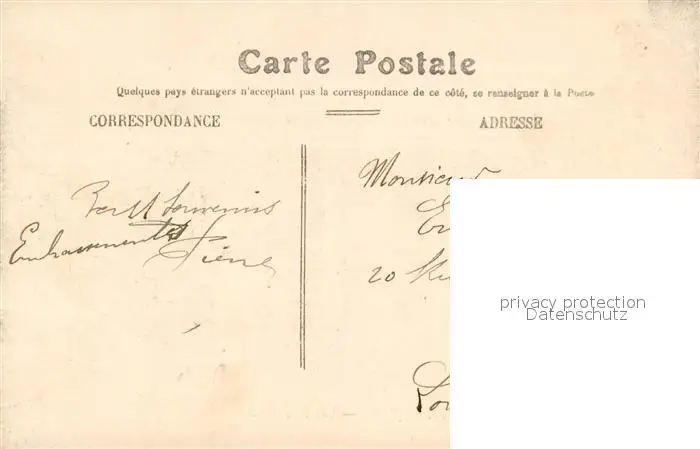 Carte Postale
Quelques pays étrangers n'acceptant pas la correspondance de ce côté, se renseigner à la Poste
CORRESPONDANCE
ADRESSE
Monsieur
20
souvenirs
Embrassements
Pierre
privacy protection
Datenschutz